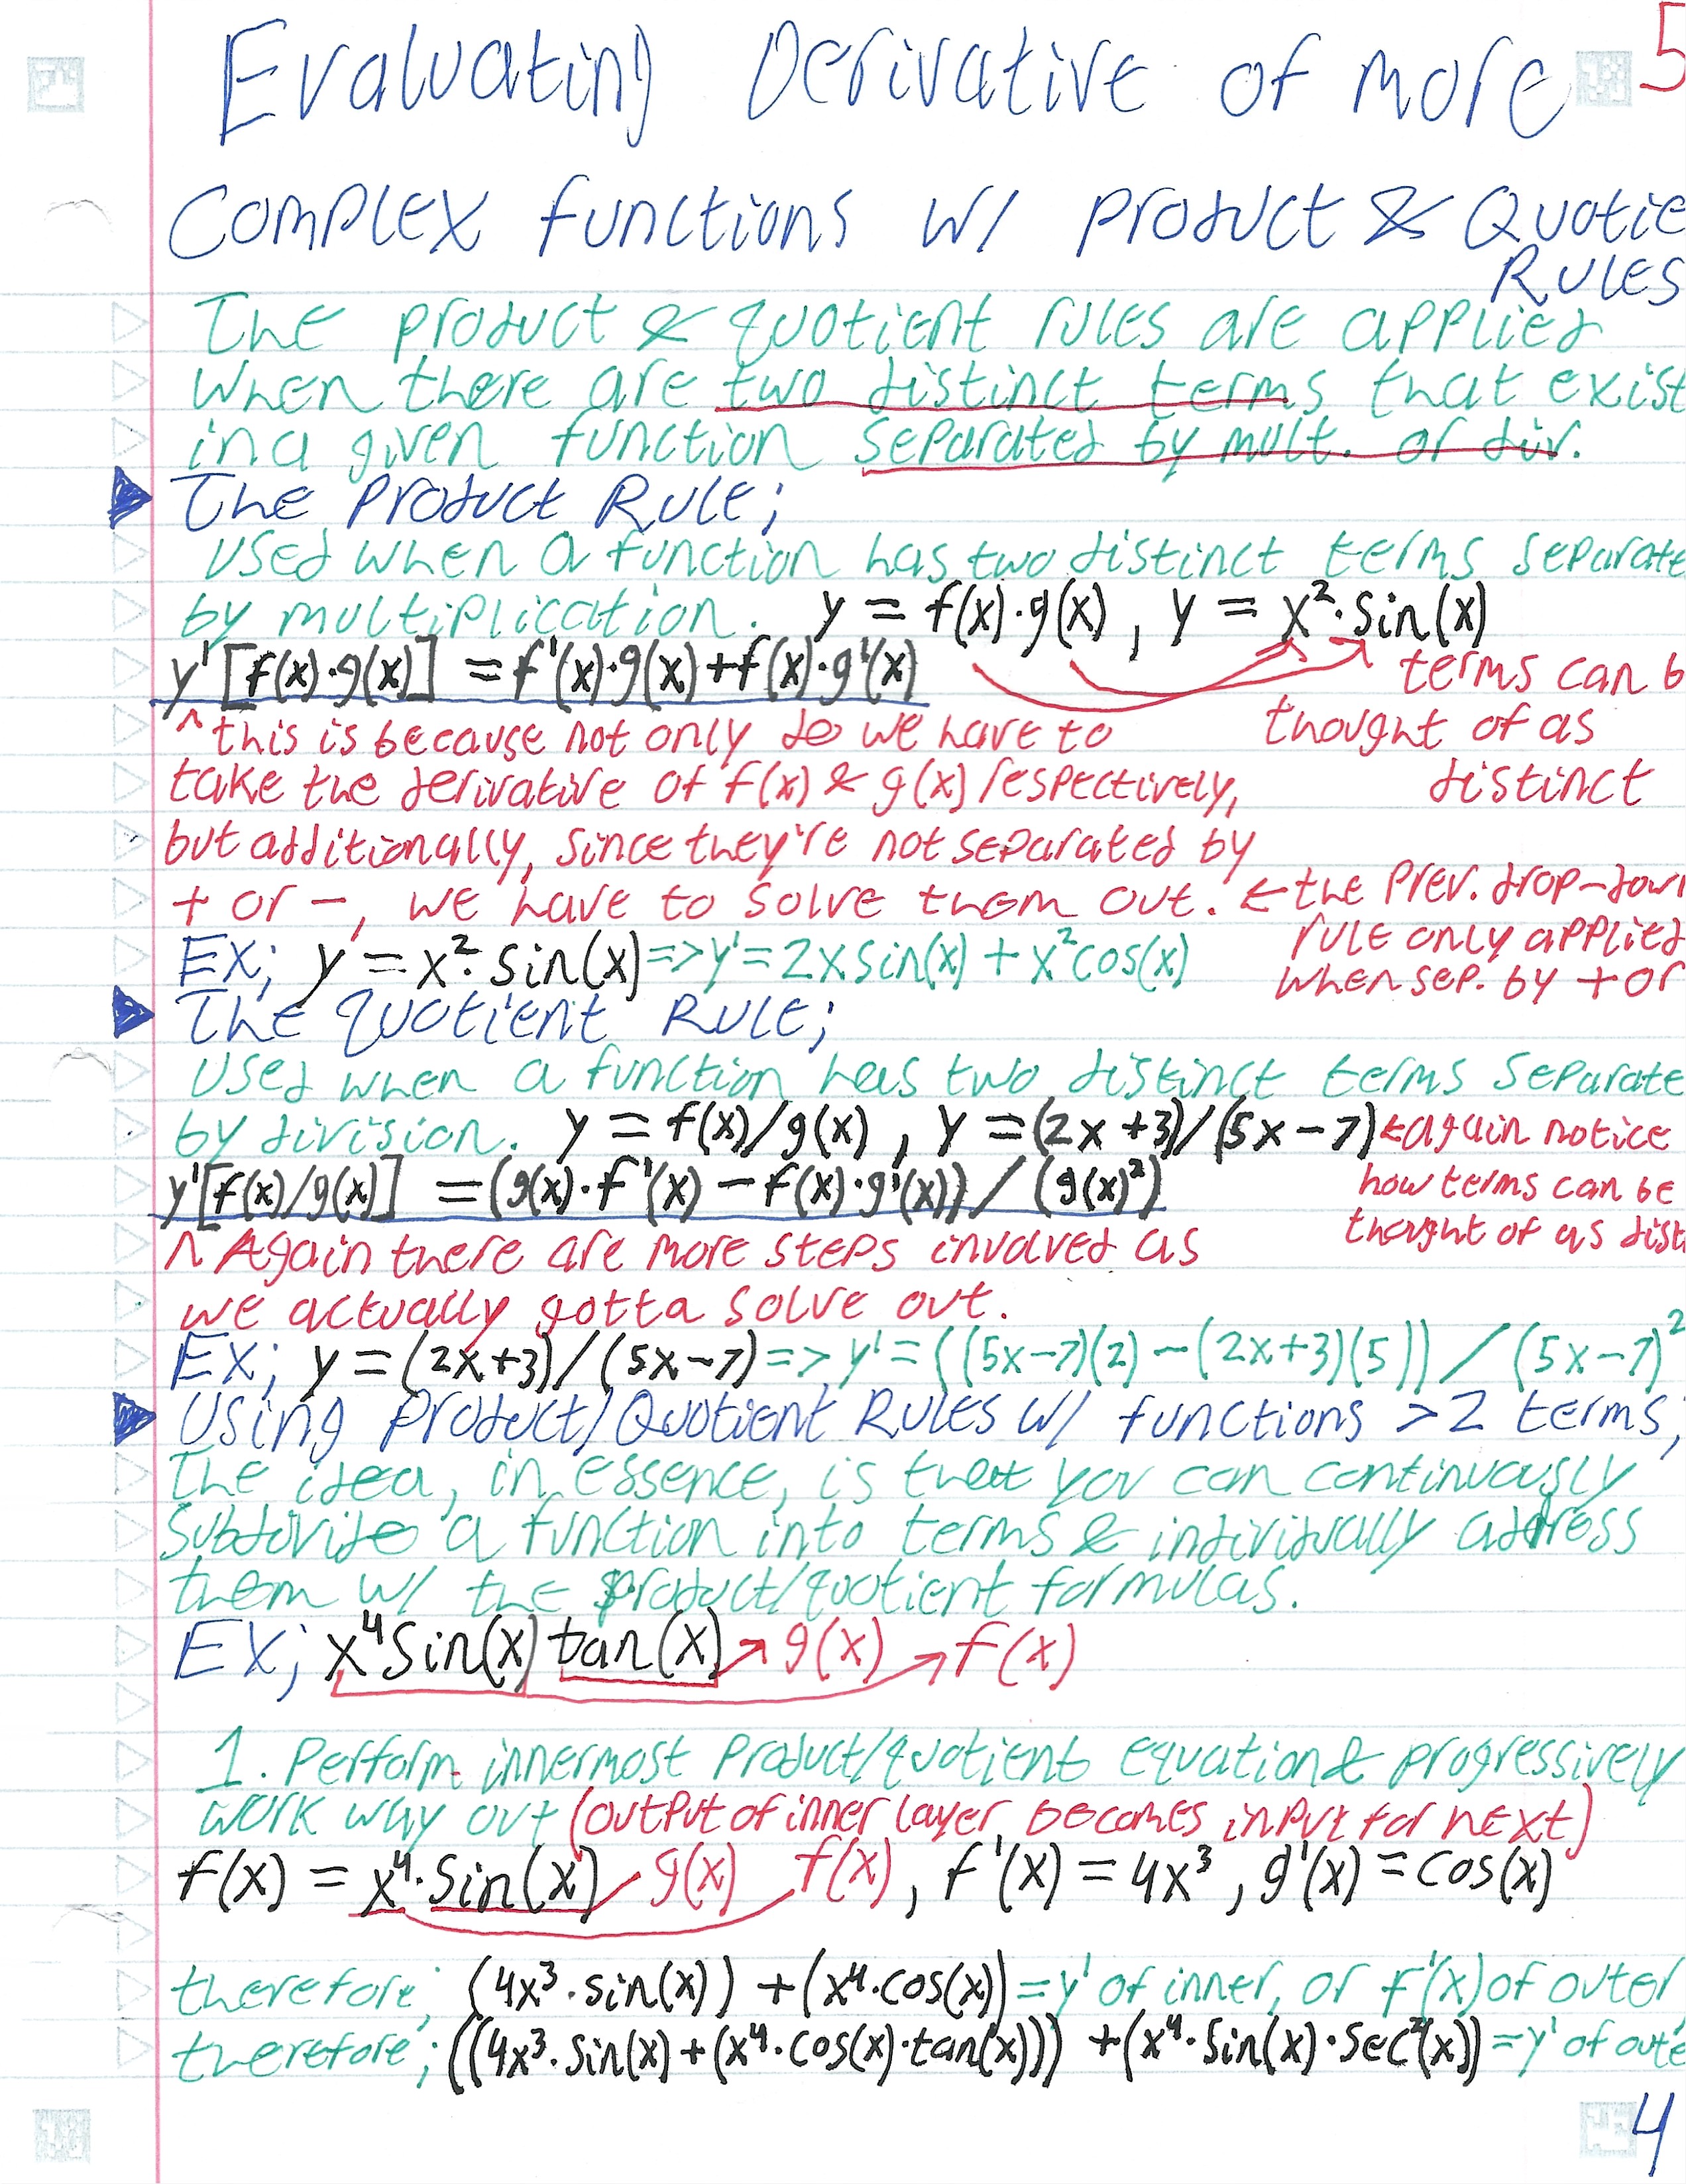 5
Evaluating Derivative of more
complex functions w/ product & Quotie
Rules
The product & quotient rules are applied
when there are two distinct terms that exist
in a given function separated by mult. or div.
The Product Rule;
Used when a function has two distinct terms separate
by multiplication. y = f(x)·g(x), y = x²·sin(x)
y'[f(x)·g(x)] = f'(x)·g(x)+f(x)·g'(x)
terms can b
thought of as
distinct
^this is because not only do we have to
take the derivative of f(x) & g(x) respectively,
but additionally, since they're not separated by
+ or -, we have to solve them out. ← the prev. drop-down
rule only applied
when sep. by + or
EX; y = x²·sin(x) => y' = 2xsin(x) + x²cos(x)
The Quotient Rule;
Used when a function has two distinct terms separate
by division. y = f(x)/g(x), y = (2x+3)/(5x-7) ← again notice
how terms can be
thought of as dist
y'[f(x)/g(x)] = (g(x)·f'(x) - f(x)·g'(x)) / (g(x)²)
^ Again there are more steps involved as
we actually gotta solve out.
EX; y = (2x+3)/(5x-7) => y' = ((5x-7)(2) - (2x+3)(5)) / (5x-7)²
Using Product/Quotient Rules w/ functions >2 terms;
The idea, in essence, is that you can continuously
subdivide a function into terms & individually address
them w/ the product/quotient formulas.
EX; x⁴sin(x)tan(x) → g(x) → f(x)
1. Perform innermost product/quotient equation & progressively
work way out (output of inner layer becomes input for next)
f(x) = x⁴·sin(x) g(x) f(x), f'(x) = 4x³, g'(x) = cos(x)
therefore; (4x³·sin(x)) + (x⁴·cos(x)) = y' of inner, or f'(x) of outer
therefore; ((4x³·sin(x)+(x⁴·cos(x)·tan(x))) + (x⁴·sin(x)·sec²(x)) = y' of oute
4